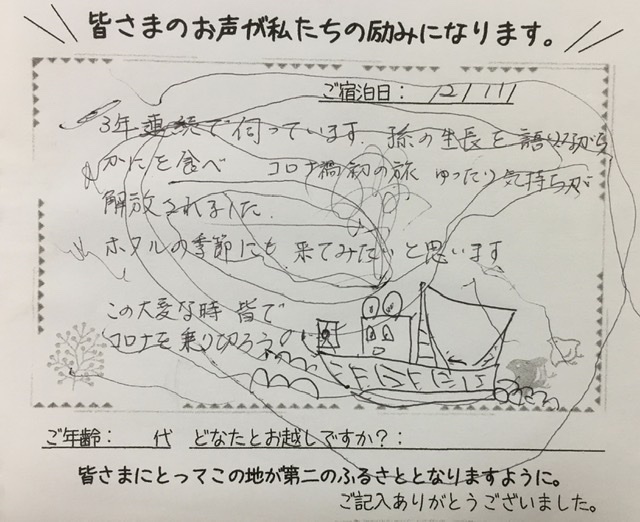 皆さまのお声が私たちの励みになります。
ご宿泊日: 12/11
3年連続で伺っています. 孫の生長を語りながら
かにを食べ コロナ禍初の旅 ゆったり気持ちが
解放されました.
ホタルの季節にも 来てみたいと思います
この大変な時 皆で
コロナを乗り切ろう
ご年齢: 代 どなたとお越しですか?:
皆さまにとってこの地が第二のふるさととなりますように。
ご記入ありがとうございました。